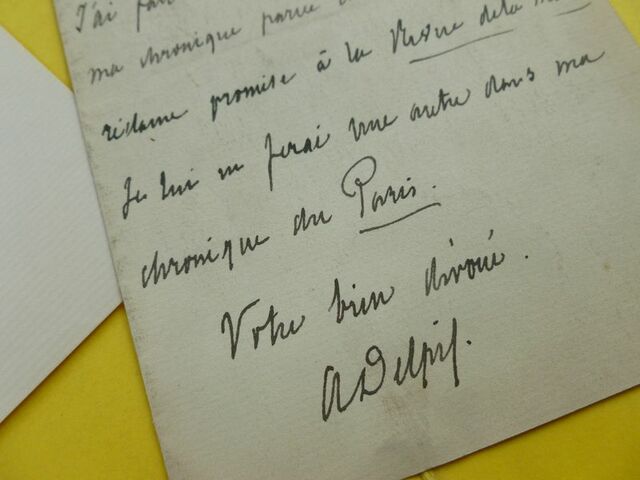 J'ai fait
ma chronique parue
réclame promise à la Revue de la
Je lui en ferai une autre dans ma
chronique du Paris.
Votre bien dévoué.
ADelpit.